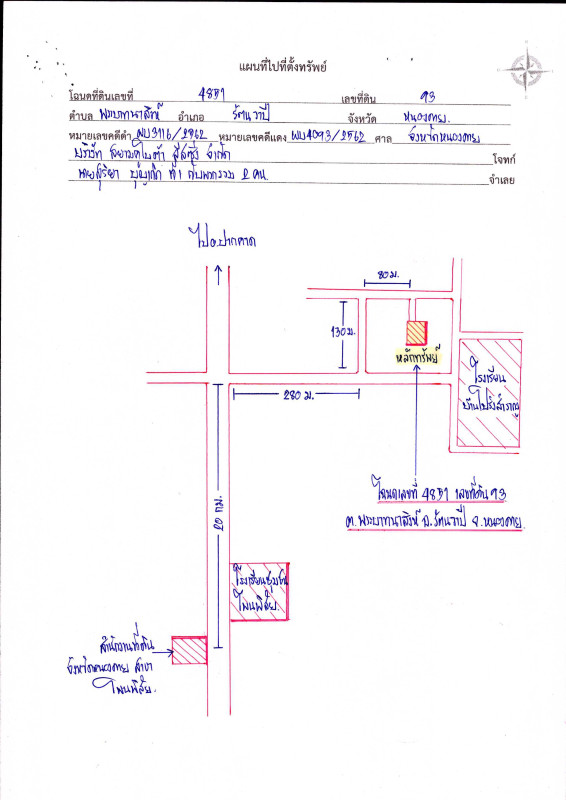 แผนที่ไปที่ตั้งทรัพย์
โฉนดที่ดินเลขที่ 4851 เลขที่ดิน 93
ตำบล พระบาทนาสิงห์ อำเภอ รัตนวาปี จังหวัด หนองคาย
หมายเลขคดีดำ ผบ3116/2562 หมายเลขคดีแดง ผบ4093/2562 ศาล จังหวัดหนองคาย
บริษัท สยามคูโบต้า ลีสซิ่ง จำกัด โจทก์
นายสุริยา บุญเกิด ที่1 กับพวกรวม 2 คน จำเลย
ไปอ.ปากคาด
80 ม.
130 ม.
หลักทรัพย์
โรงเรียน
280 ม.
โฉนดเลขที่ 4851 เลขที่ดิน 93
ต.พระบาทนาสิงห์ อ.รัตนวาปี จ.หนองคาย
กม.
โรงเรียนชุมชน
โพนพิสัย
สำนักงานที่ดิน
จังหวัดหนองคาย สาขา
โพนพิสัย.